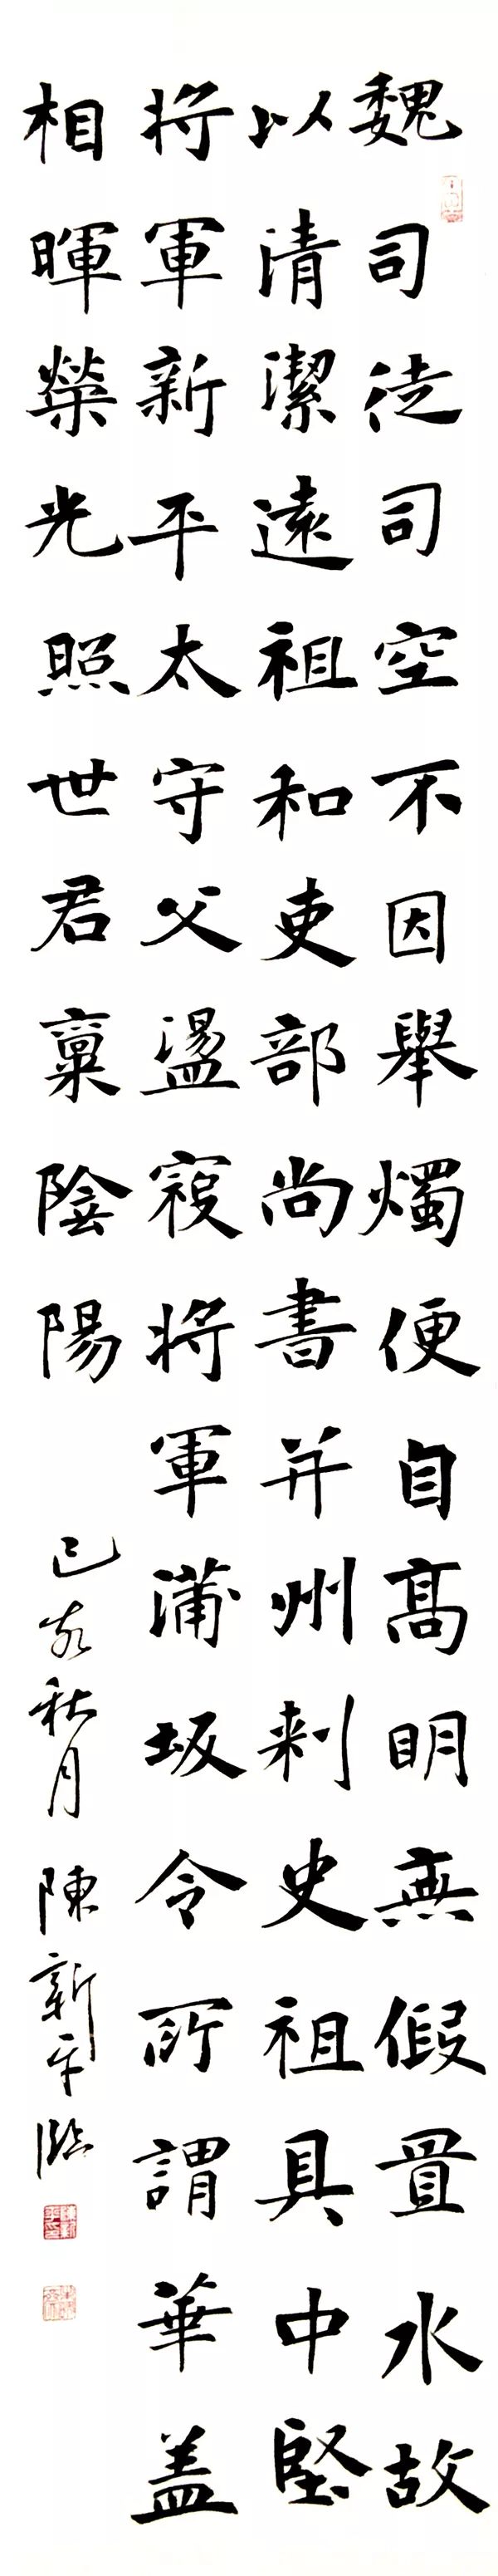 魏司徒司空不因舉燭便自高明無假置水故
以清潔遠祖和吏部尚書并州刺史祖具中堅
將軍新平太守父盪寇將軍蒲坂令所謂華蓋
相暉榮光照世君稟陰陽
己亥秋月陳新平臨